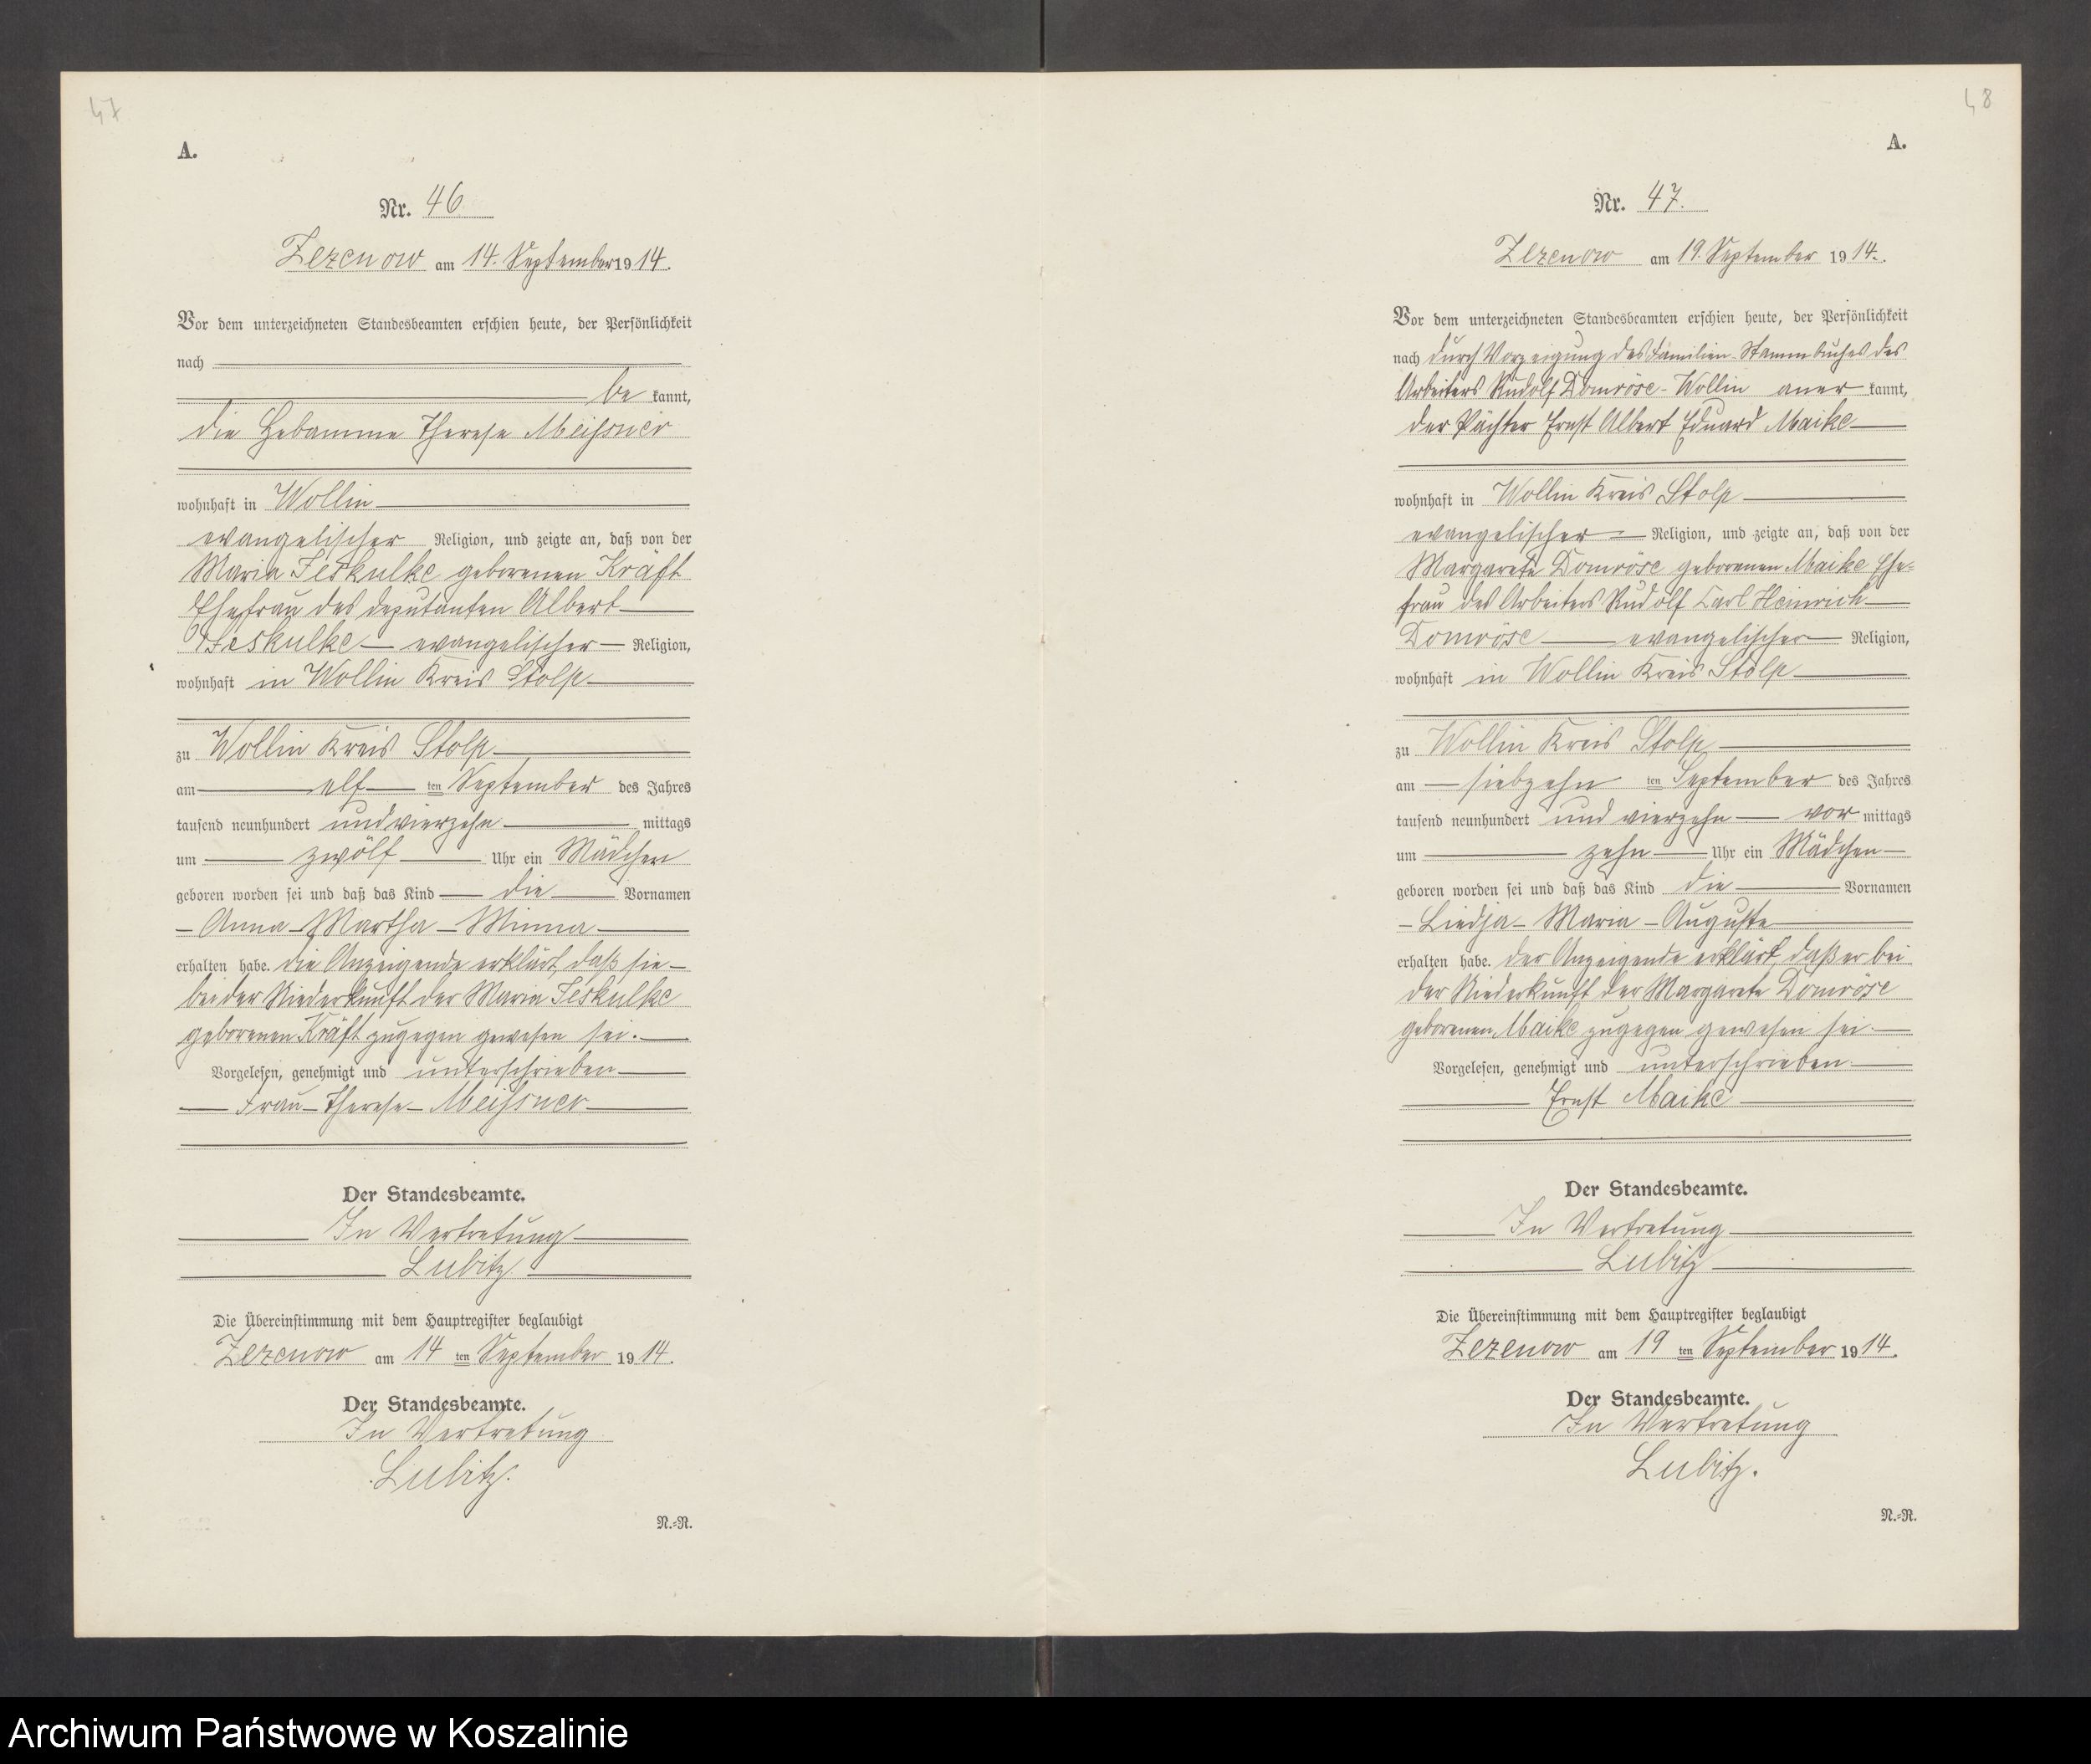 47
A.
Nr. 46
Zezenow am 14. September 1914.
Vor dem unterzeichneten Standesbeamten erschien heute, der Persönlichkeit
nach
be kannt,
die Hebamme Therese Meißner
wohnhaft in Wollin
evangelischer Religion, und zeigte an, daß von der
Maria Jeskulke geborenen Kräft
Ehefrau des Deputanten Albert
Jeskulke evangelischer Religion,
wohnhaft in Wollin Kreis Stolp
zu Wollin Kreis Stolp
am elf ten September des Jahres
tausend neunhundert und vierzehn mittags
um zwölf Uhr ein Mädchen
geboren worden sei und daß das Kind die Vornamen
Anna Martha Minna
erhalten habe. Die Anzeigende erklärt, daß sie
bei der Niederkunft der Maria Jeskulke
geborenen Kräft zugegen gewesen sei.
Vorgelesen, genehmigt und unterschrieben
Frau Therese Meißner
Der Standesbeamte.
In Vertretung
Lubitz
Die Übereinstimmung mit dem Hauptregister beglaubigt
Zezenow am 14 ten September 1914.
Der Standesbeamte.
In Vertretung
Lubitz.
N.-R.
48
A.
Nr. 47.
Zezenow am 19. September 1914.
Vor dem unterzeichneten Standesbeamten erschien heute, der Persönlichkeit
nach durch Vorzeigung des Familien-Stammbuches des
Arbeiters Rudolf Domröse-Wollin aner kannt,
der Pächter Ernst Albert Eduard Maike
wohnhaft in Wollin Kreis Stolp
evangelischer Religion, und zeigte an, daß von der
Margarete Domröse geborenen Maike Ehe-
frau des Arbeiters Rudolf Carl Heinrich
Domröse evangelischer Religion,
wohnhaft in Wollin Kreis Stolp
zu Wollin Kreis Stolp
am siebzehn ten September des Jahres
tausend neunhundert und vierzehn vor mittags
um zehn Uhr ein Mädchen
geboren worden sei und daß das Kind die Vornamen
Liedja Maria Auguste
erhalten habe. Der Anzeigende erklärt, daß er bei
der Niederkunft der Margarete Domröse
geborenen Maike zugegen gewesen sei.
Vorgelesen, genehmigt und unterschrieben
Ernst Maike
Der Standesbeamte.
In Vertretung
Lubitz
Die Übereinstimmung mit dem Hauptregister beglaubigt
Zezenow am 19 ten September 1914.
Der Standesbeamte.
In Vertretung
Lubitz.
N.-R.
Archiwum Państwowe w Koszalinie